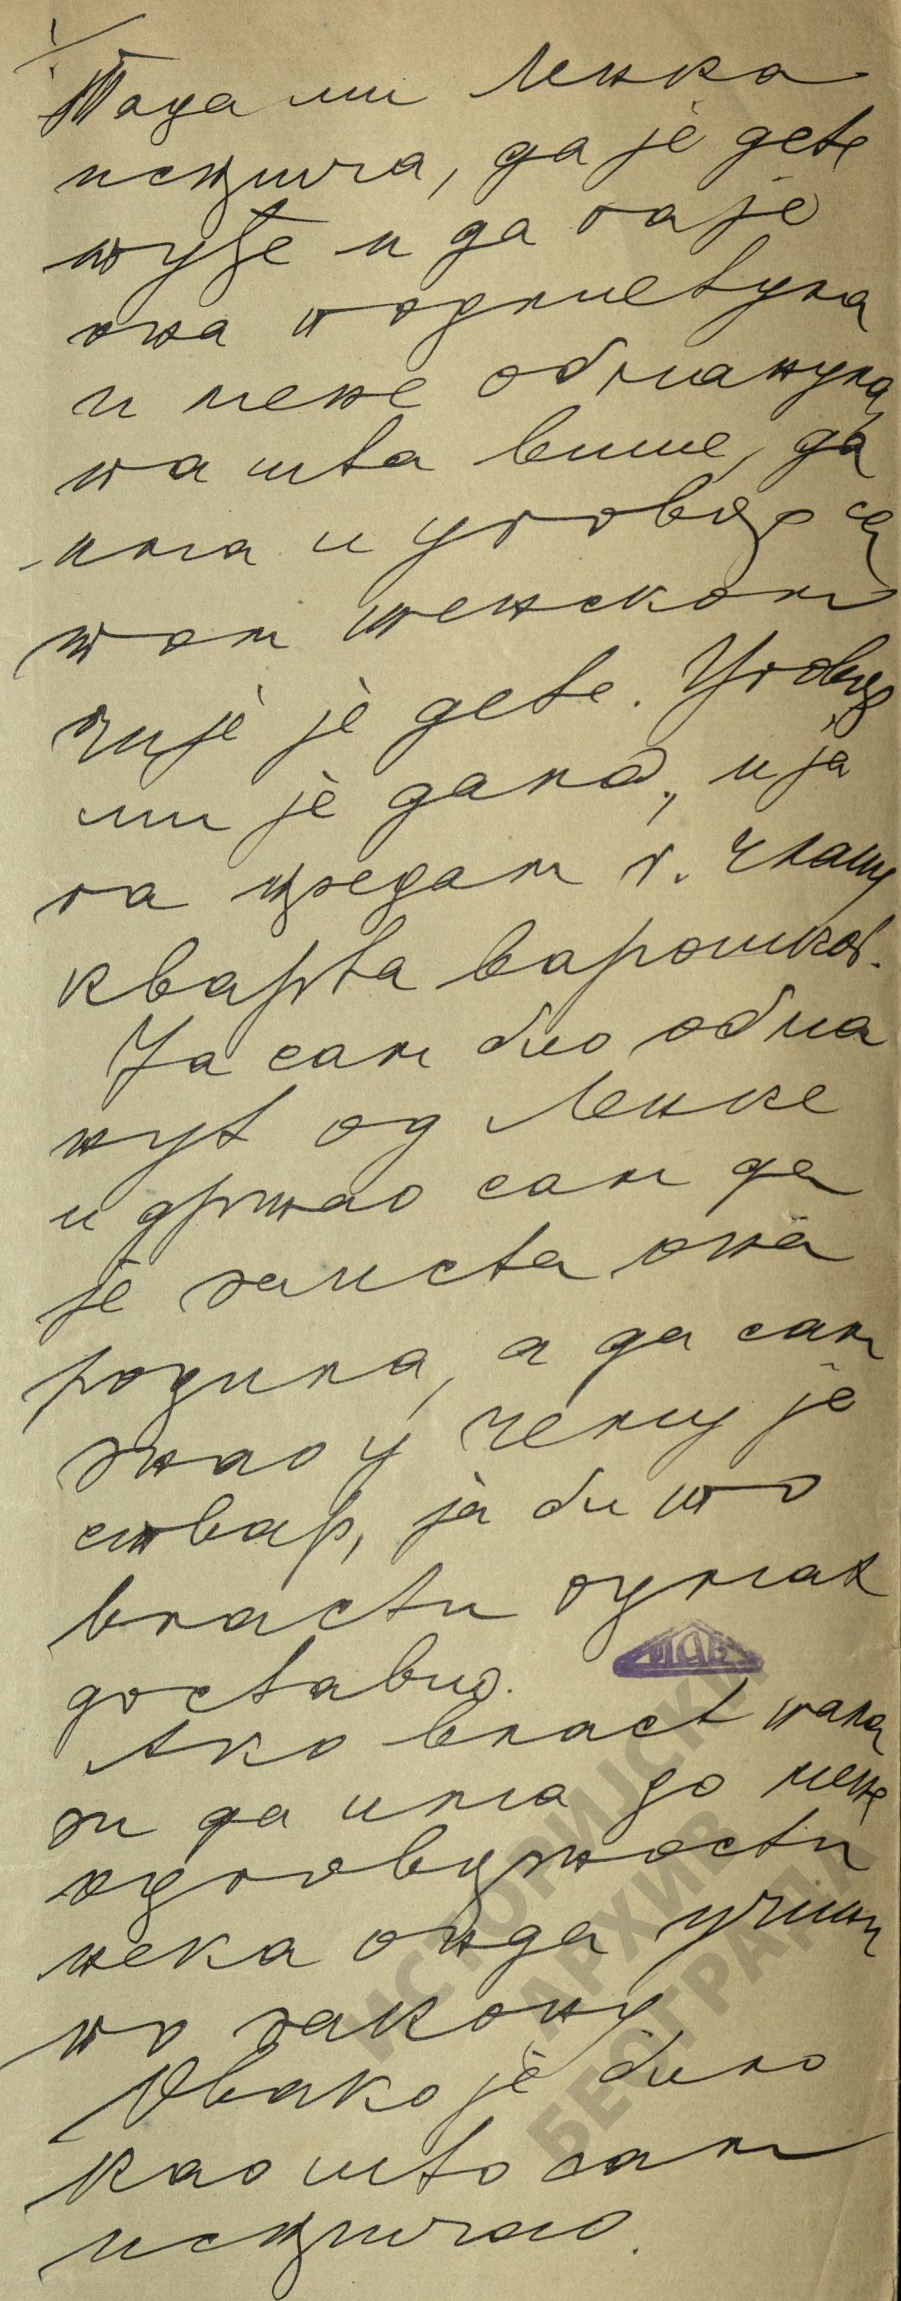 Тада ми Ленка
исприча, да је дете
туђе и да га је
она подметула
и мене обманула,
па шта више, да
има и уговор са
том женском
чије је дете. Уговор
ми је дала, и ја
га предам г. члану
кварта варошког.
Ја сам био обма
нут од Ленке
и држао сам да
је заиста она
родила, а да сам
знао у чему је
ствар, ја би то
власти одмах
доставио.
Ако власт нала
зи да има до мене
одговорности
нека онда учини
по закону
Овако је било
као што сам
испричао.
ИСТОРИЈСКИ
АРХИВ
БЕОГРАДА